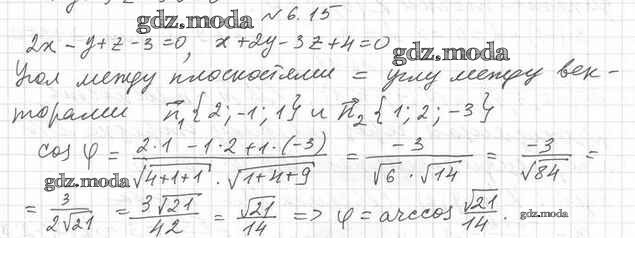 №6.15
gdz.moda
2x - y + z - 3 = 0, x + 2y - 3z + 4 = 0
gdz.moda
Угол между плоскостями = углу между век-
торами n⃗₁{2; -1; 1} и n⃗₂{1; 2; -3}
cos φ = (2·1 - 1·2 + 1·(-3)) / (√(4+1+1) · √(1+4+9)) = -3 / (√6 · √14) = -3 / √84 =
gdz.moda
= 3 / (2√21) = 3√21 / 42 = √21 / 14 => φ = arccos √21 / 14.
gdz.moda